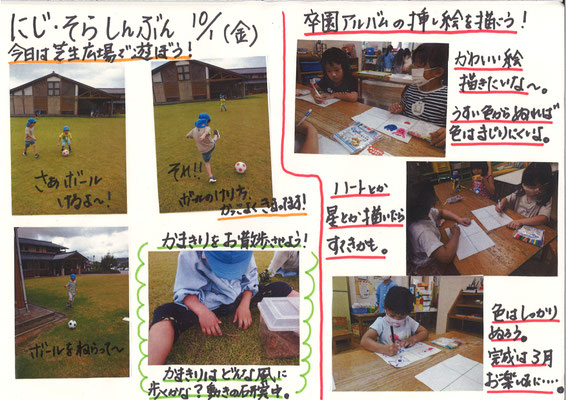 にじ・そらしんぶん 10/1(金)
今日は芝生広場で遊ぼう!
さあボール
けるよ〜!
それ!!
ボールのけり方
かっこよくきまってるね!
ボールをねらって〜
かまきりをお散歩させよう!
かまきりはどんな風に
歩くかな?動きの研究中。
卒園アルバムの挿し絵を描こう!
かわいい絵
描きたいな〜。
うすい色からぬれば
色はまじりにくいよ。
ハートとか
星とか描いたら
すてきかも。
色はしっかり
ぬろう。
完成は3月
お楽しみに・・・・。